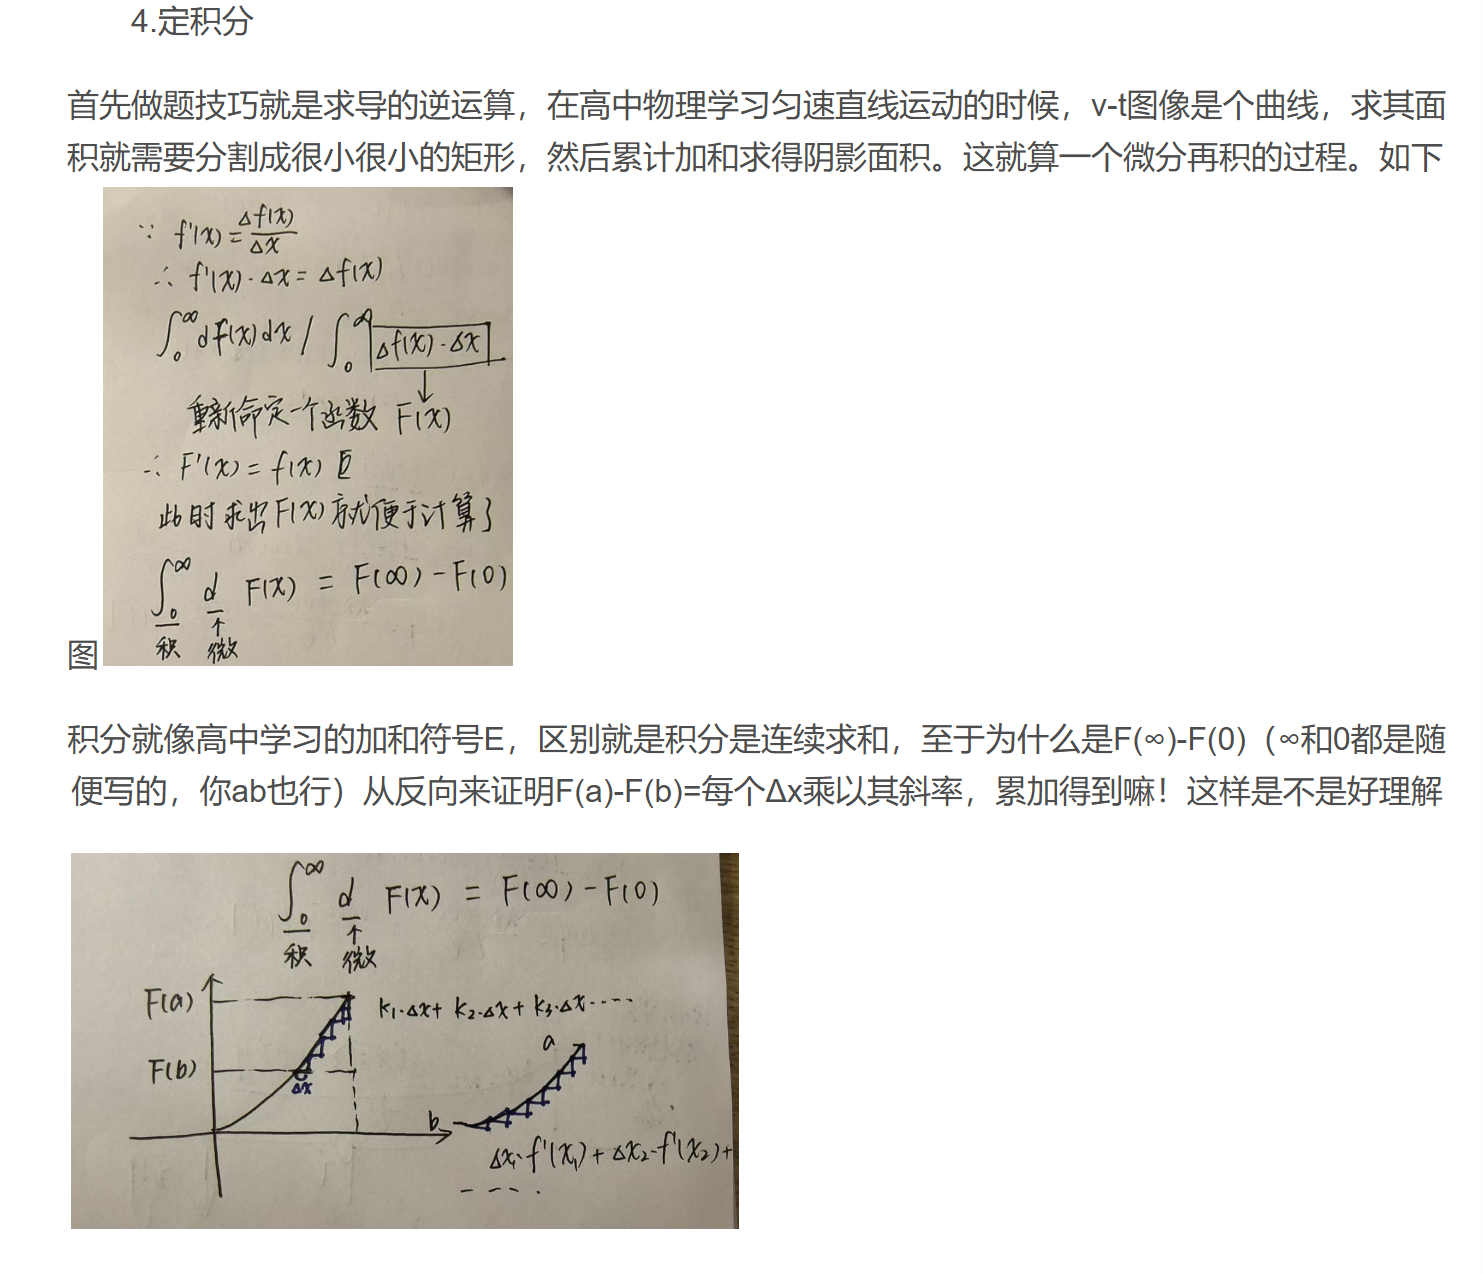 4.定积分
首先做题技巧就是求导的逆运算，在高中物理学习匀速直线运动的时候，v-t图像是个曲线，求其面
积就需要分割成很小很小的矩形，然后累计加和求得阴影面积。这就算一个微分再积的过程。如下
∵ f'(x)=Δf(x)/Δx
∴ f'(x)·Δx=Δf(x)
∫₀^∞ dF(x)dx / ∫₀^∞ Δf(x)·Δx
↓
重新命定一个函数 F(x)
∴ F'(x)=f(x)
此时求出F(x)就便于计算了
∫₀^∞ d F(x) = F(∞)-F(0)
↑
积 微
图
积分就像高中学习的加和符号E，区别就是积分是连续求和，至于为什么是F(∞)-F(0)（∞和0都是随
便写的，你ab也行）从反向来证明F(a)-F(b)=每个Δx乘以其斜率，累加得到嘛！这样是不是好理解
∫₀^∞ d F(x) = F(∞)-F(0)
↑
积 微
F(a)
k₁·Δx+ k₂·Δx+ k₃·Δx····
a
F(b)
Δx
b
Δx₁·f'(x₁)+Δx₂·f'(x₂)+
----.